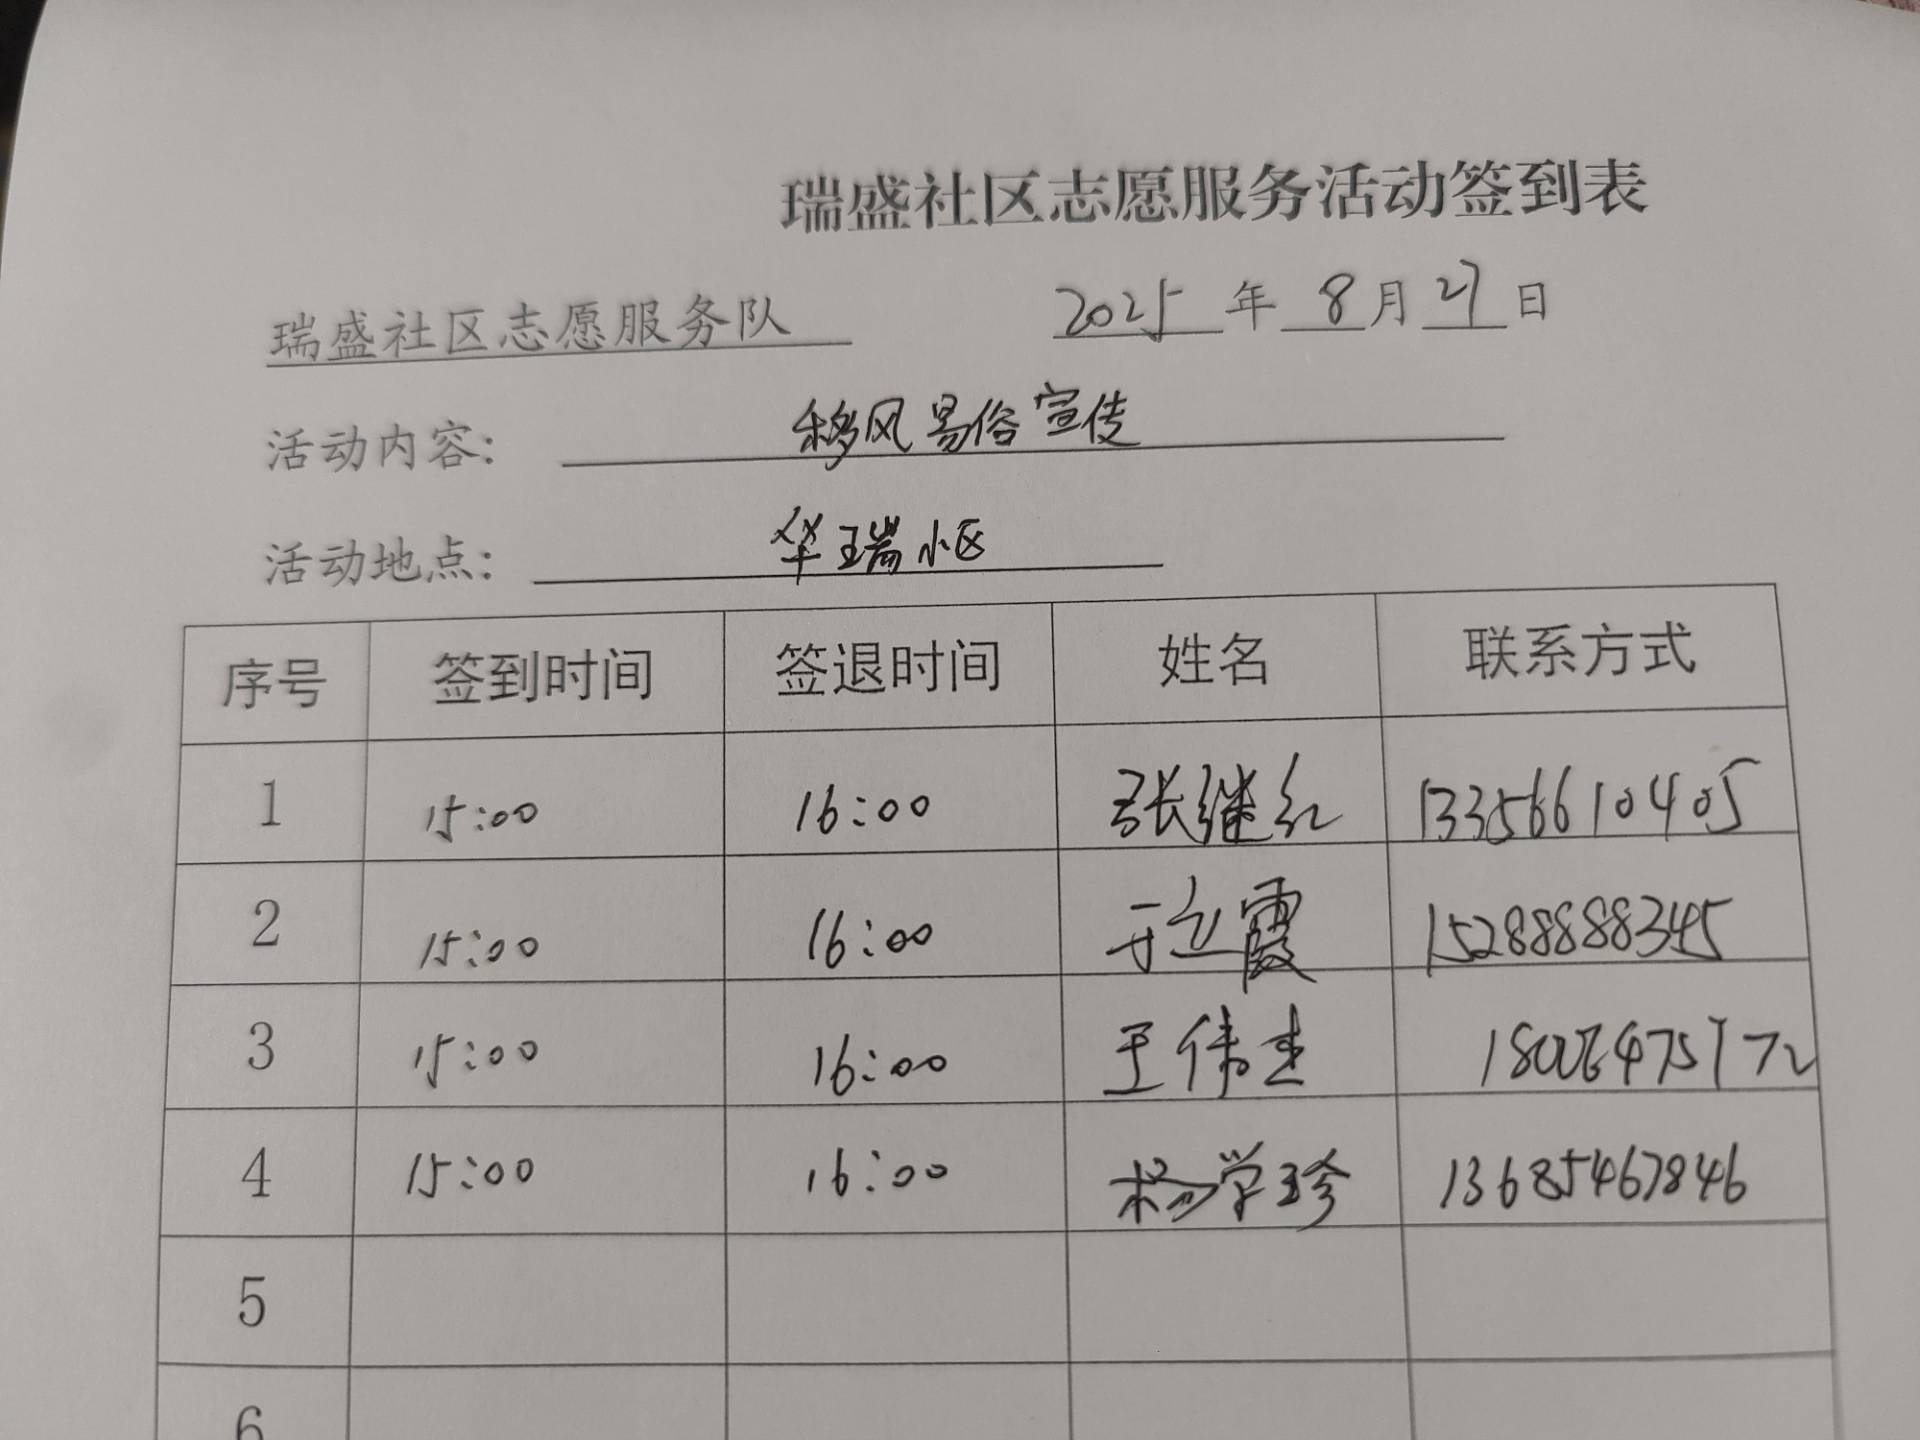 瑞盛社区志愿服务活动签到表
瑞盛社区志愿服务队 2025 年 8 月 27 日
活动内容: 移风易俗宣传
活动地点: 华瑞小区
序号 签到时间 签退时间 姓名 联系方式
1 15:00 16:00 张继红 13356610405
2 15:00 16:00 于立霞 15288888345
3 15:00 16:00 王伟杰
4 15:00 16:00 杨学珍 13685467846
5
6